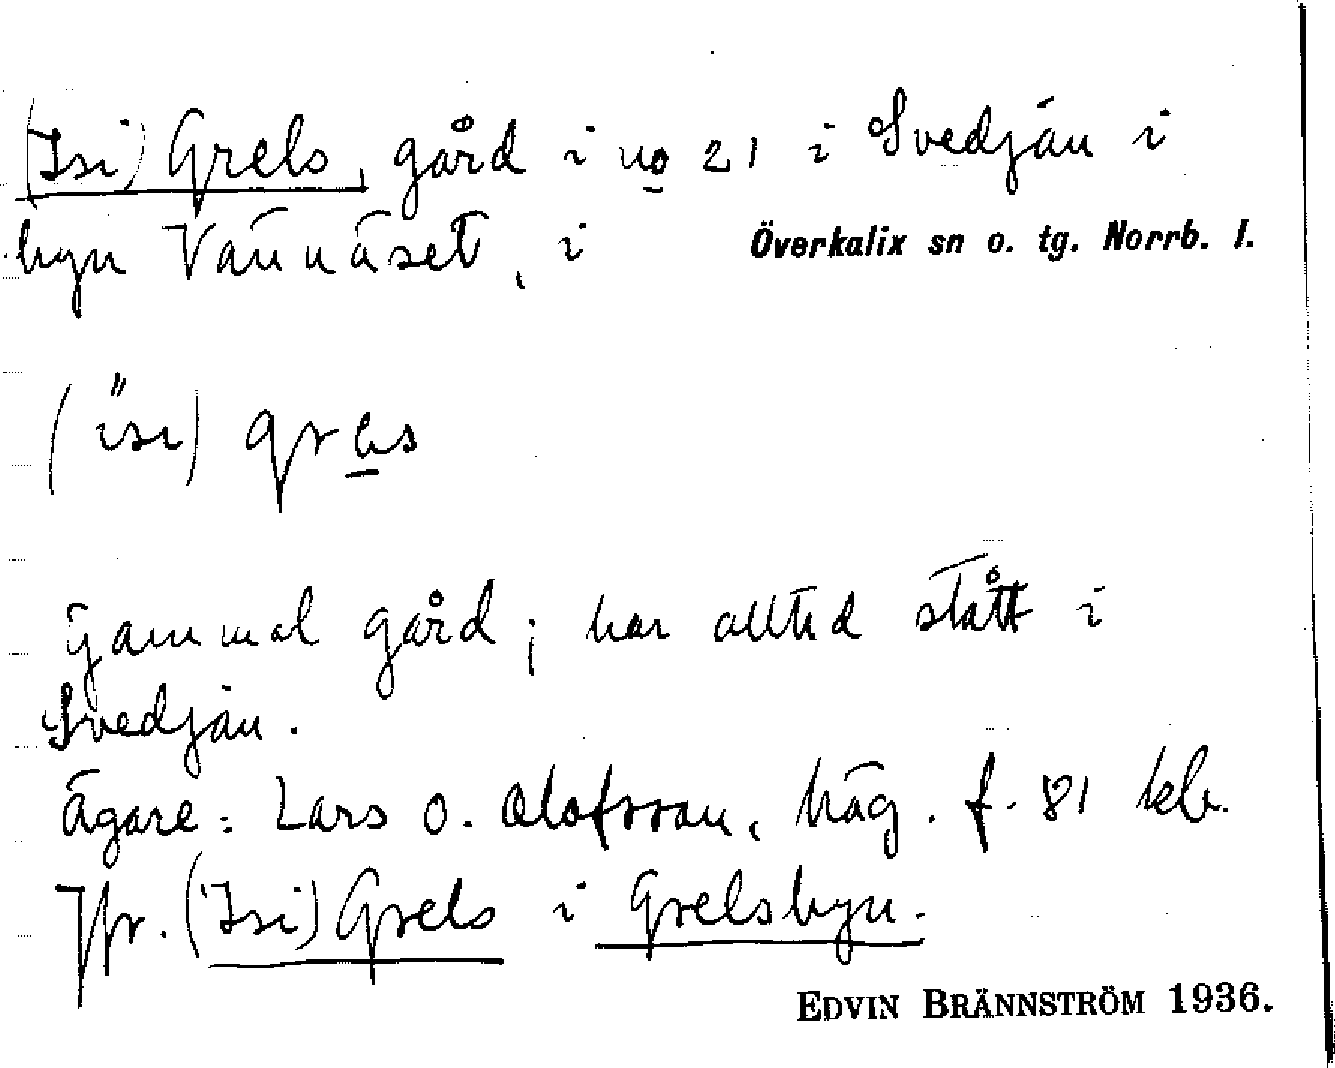 (Isi) Grels, gård i no 21 i Svedjån i
byn Vännäset, i Överkalix sn o. tg. Norrb. l.
gammal gård; har alltid stått i
Svedjån.
Ägare: Lars O. Olofsson, häg. f. 81
Jfr. (Isi) Grels i Grelsbyn.
EDVIN BRÄNNSTRÖM 1936.